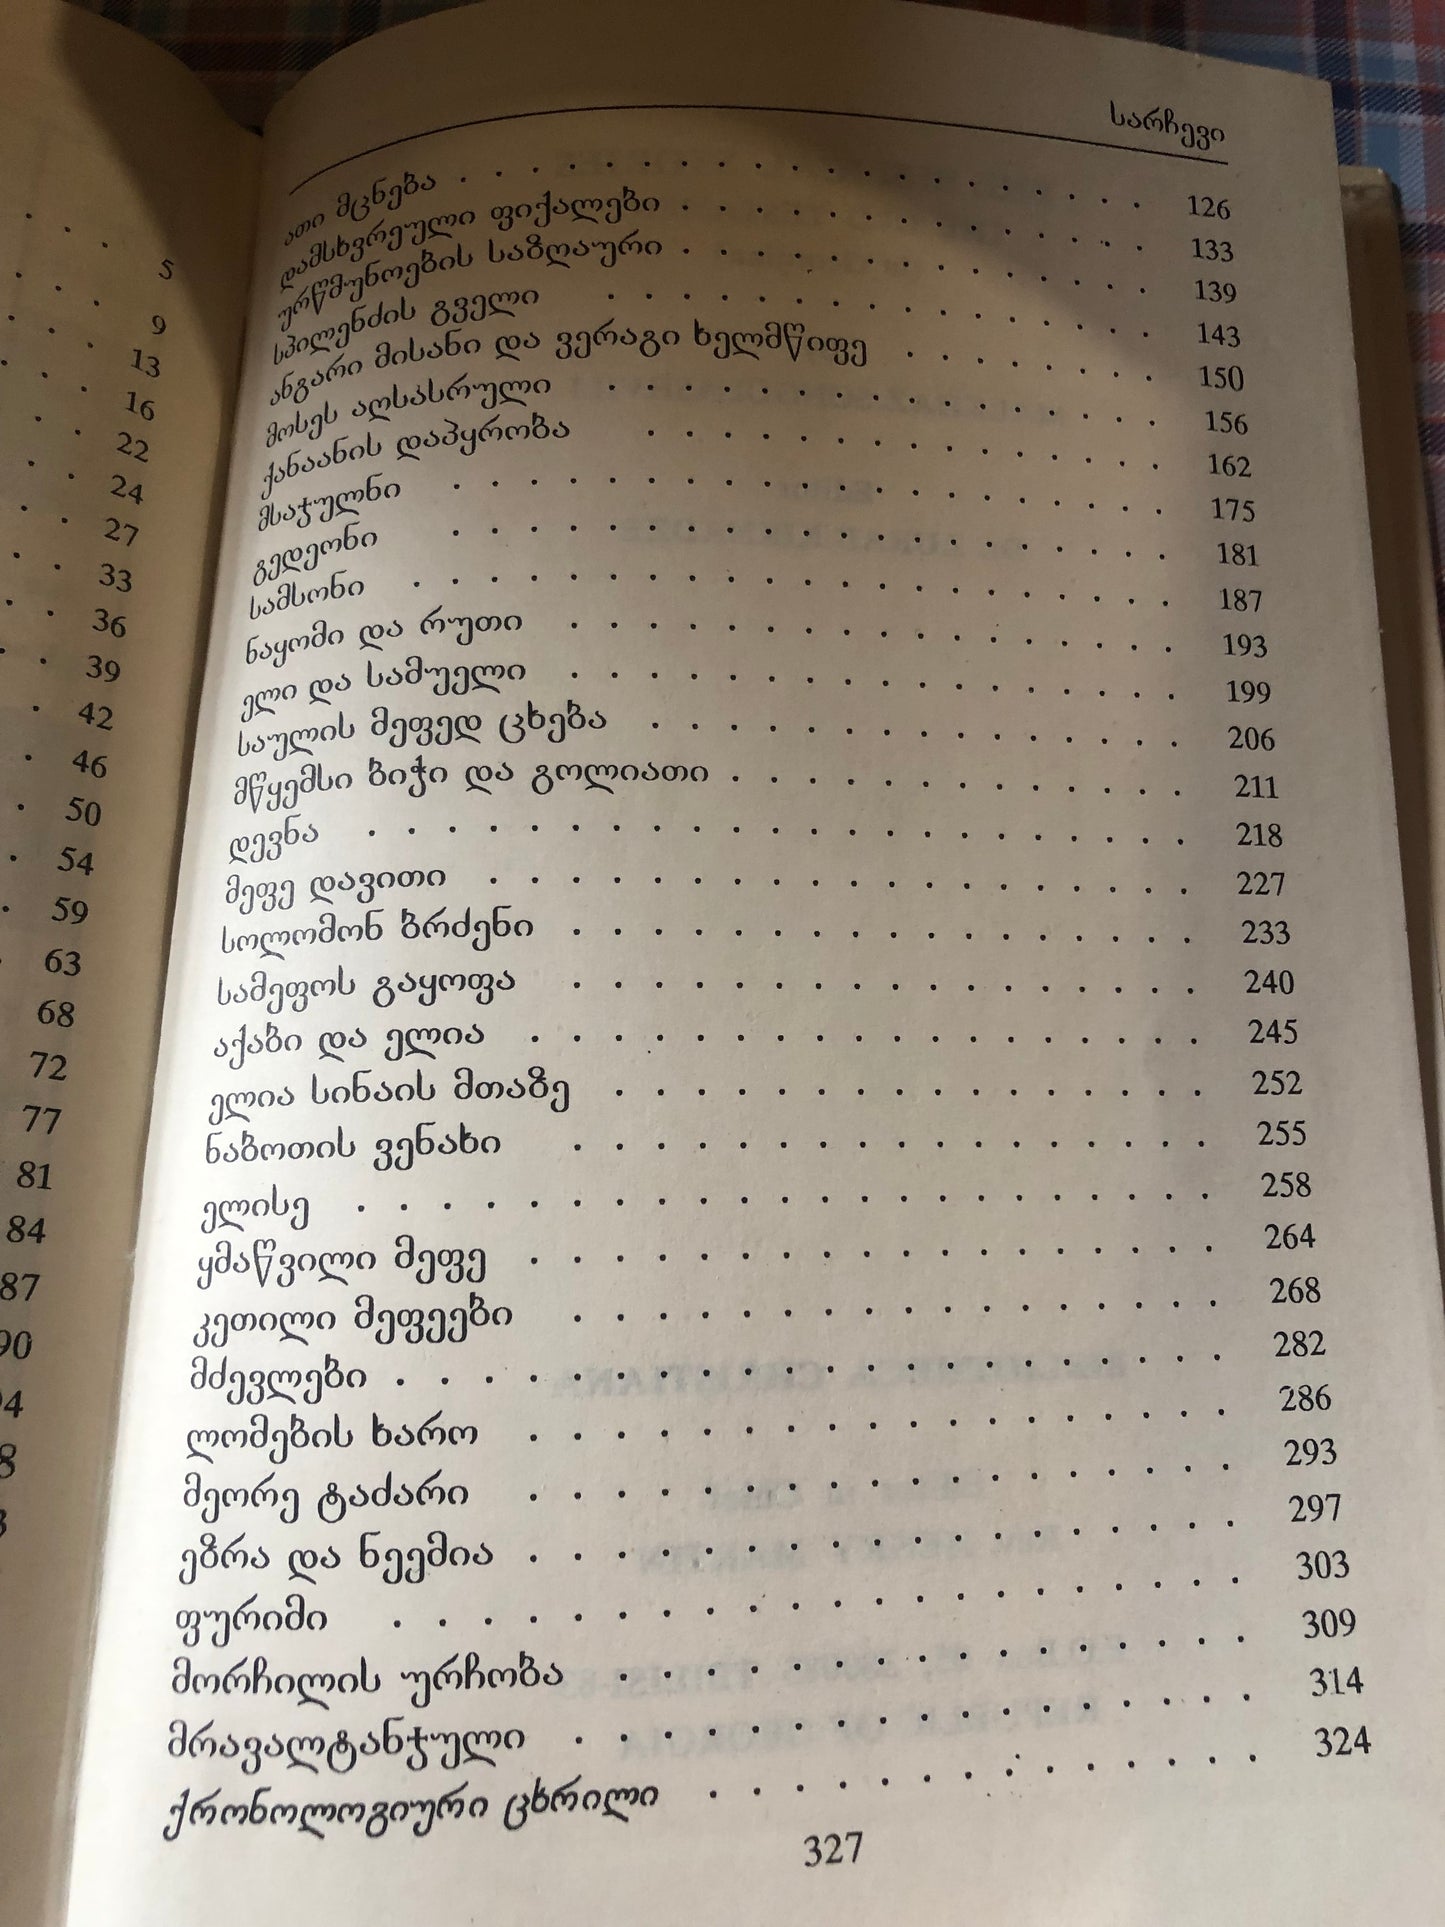 5
9
13
16
22
24
27
33
36
39
42
46
50
54
59
63
68
72
77
81
84
87
90
94
სარჩევი
ათი მცნება . . . . . . . . . . . . . . . . . 126
დამსხვრეული ფიქალები . . . . . . . . . . . . 133
ურწმუნოების საზღაური . . . . . . . . . . . . 139
სპილენძის გველი . . . . . . . . . . . . . . 143
ანგარი მისანი და ვერაგი ხელმწიფე . . . . . . . 150
მოსეს აღსასრული . . . . . . . . . . . . . . 156
ქანაანის დაპყრობა . . . . . . . . . . . . . 162
მსაჯულნი . . . . . . . . . . . . . . . . . . 175
გედეონი . . . . . . . . . . . . . . . . . . 181
სამსონი . . . . . . . . . . . . . . . . . . . 187
ნაყომი და რუთი . . . . . . . . . . . . . . . 193
ელი და სამუელი . . . . . . . . . . . . . . . 199
საულის მეფედ ცხება . . . . . . . . . . . . . 206
მწყემსი ბიჭი და გოლიათი . . . . . . . . . . . 211
დევნა . . . . . . . . . . . . . . . . . . . . 218
მეფე დავითი . . . . . . . . . . . . . . . . . 227
სოლომონ ბრძენი . . . . . . . . . . . . . . . 233
სამეფოს გაყოფა . . . . . . . . . . . . . . . 240
აქაბი და ელია . . . . . . . . . . . . . . . . 245
ელია სინაის მთაზე . . . . . . . . . . . . . . 252
ნაბოთის ვენახი . . . . . . . . . . . . . . . 255
ელისე . . . . . . . . . . . . . . . . . . . . 258
ყმაწვილი მეფე . . . . . . . . . . . . . . . . 264
კეთილი მეფეები . . . . . . . . . . . . . . . 268
მძევლები . . . . . . . . . . . . . . . . . . . 282
ლომების ხარო . . . . . . . . . . . . . . . . 286
მეორე ტაძარი . . . . . . . . . . . . . . . . 293
ეზრა და ნეემია . . . . . . . . . . . . . . . . 297
ფურიმი . . . . . . . . . . . . . . . . . . . 303
მორჩილის ურჩობა . . . . . . . . . . . . . . 309
მრავალტანჯული . . . . . . . . . . . . . . . 314
ქრონოლოგიური ცხრილი . . . . . . . . . . . . 324
327